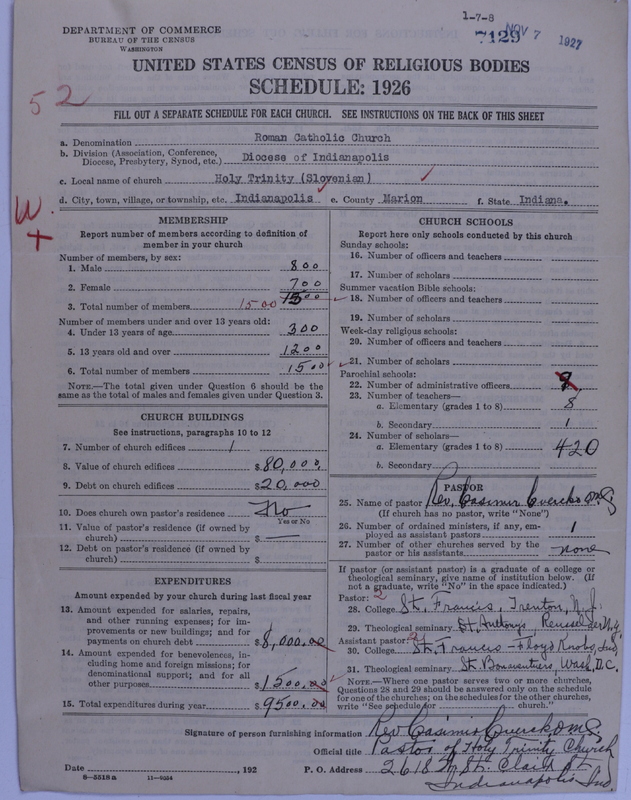 1-7-8
7129 NOV 7 1927
DEPARTMENT OF COMMERCE
BUREAU OF THE CENSUS
WASHINGTON
UNITED STATES CENSUS OF RELIGIOUS BODIES
SCHEDULE: 1926
52
FILL OUT A SEPARATE SCHEDULE FOR EACH CHURCH. SEE INSTRUCTIONS ON THE BACK OF THIS SHEET
a. Denomination Roman Catholic Church
b. Division (Association, Conference, Diocese, Presbytery, Synod, etc.) Diocese of Indianapolis
c. Local name of church Holy Trinity (Slovenian)
d. City, town, village, or township, etc. Indianapolis e. County Marion f. State Indiana.
W
MEMBERSHIP
Report number of members according to definition of
member in your church
Number of members, by sex:
1. Male 800
2. Female 700
3. Total number of members 1500 1500
Number of members under and over 13 years old:
4. Under 13 years of age 300
5. 13 years old and over 1200
6. Total number of members 1500
NOTE.—The total given under Question 6 should be the
same as the total of males and females given under Question 3.
CHURCH BUILDINGS
See instructions, paragraphs 10 to 12
7. Number of church edifices 1
8. Value of church edifices $80,000,
9. Debt on church edifices $20,000
10. Does church own pastor's residence No
Yes or No
11. Value of pastor's residence (if owned by
church) $ —
12. Debt on pastor's residence (if owned by
church) $
EXPENDITURES
Amount expended by your church during last fiscal year
13. Amount expended for salaries, repairs,
and other running expenses; for im-
provements or new buildings; and for
payments on church debt $8,000.00
14. Amount expended for benevolences, in-
cluding home and foreign missions; for
denominational support; and for all
other purposes $1500.00
15. Total expenditures during year $9500.00
CHURCH SCHOOLS
Report here only schools conducted by this church
Sunday schools:
16. Number of officers and teachers
17. Number of scholars
Summer vacation Bible schools:
18. Number of officers and teachers
19. Number of scholars
Week-day religious schools:
20. Number of officers and teachers
21. Number of scholars
Parochial schools:
22. Number of administrative officers
23. Number of teachers—
a. Elementary (grades 1 to 8) 8
b. Secondary 1
24. Number of scholars—
a. Elementary (grades 1 to 8) 420
b. Secondary
PASTOR
25. Name of pastor Rev. Casimir Cvercko
(If church has no pastor, write "None")
26. Number of ordained ministers, if any, em-
ployed as assistant pastors 1
27. Number of other churches served by the
pastor or his assistants none
If pastor (or assistant pastor) is a graduate of a college or
theological seminary, give name of institution below. (If
not a graduate, write "No" in the space indicated.)
Pastor: 2
28. College St. Francis, Trenton, N.J.
29. Theological seminary St. Anthonys, Rensselaer N.Y.
Assistant pastor:
30. College St. Francis - Floyd Knobs, Ind
31. Theological seminary St. Bonaventures, Wash. D.C.
NOTE.—Where one pastor serves two or more churches,
Questions 28 and 29 should be answered only on the schedule
for one of the churches; on the schedules for the other churches,
write "See schedule for church."
Signature of person furnishing information Rev Casimir Cvercko
Official title Pastor of Holy Trinity Church
Date , 192 P. O. Address 2618 W St. Clair St.
8-5518a 11-6054 Indianapolis Ind.